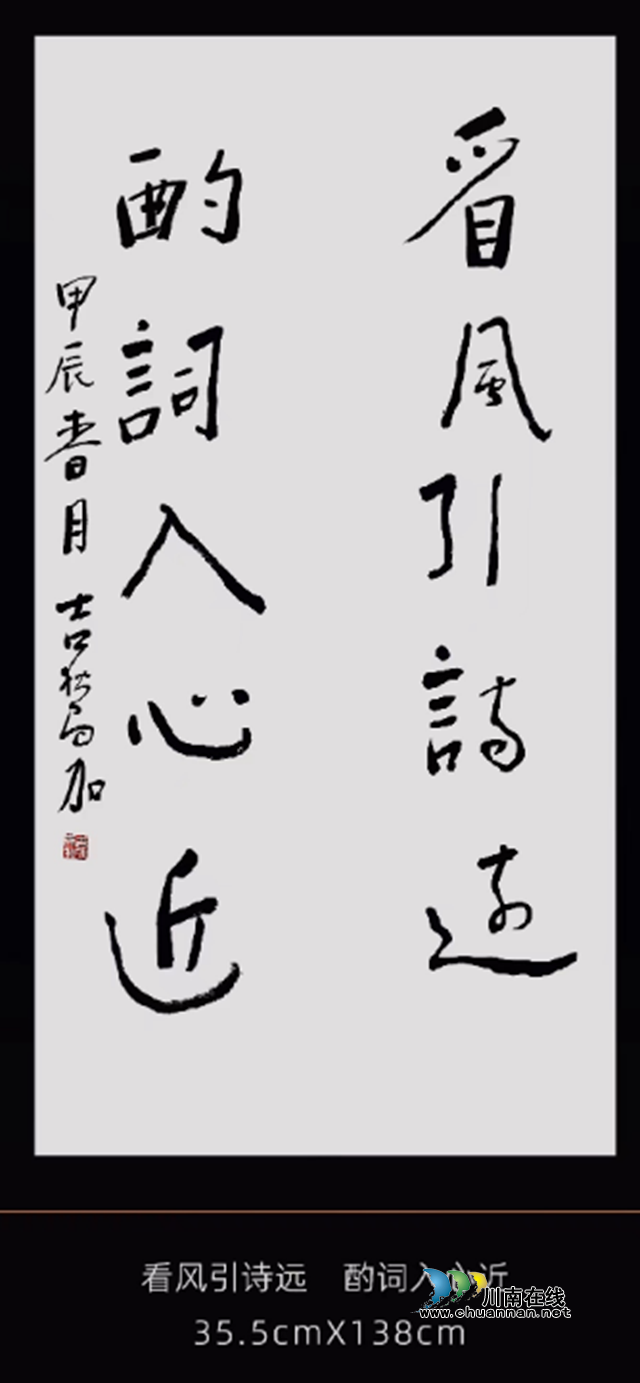 看風引詩遠
酌詞入心近
甲辰春月 吉狄馬加
看风引诗远 酌词入心近
川南在线
www.chuannan.net
35.5cmX138cm